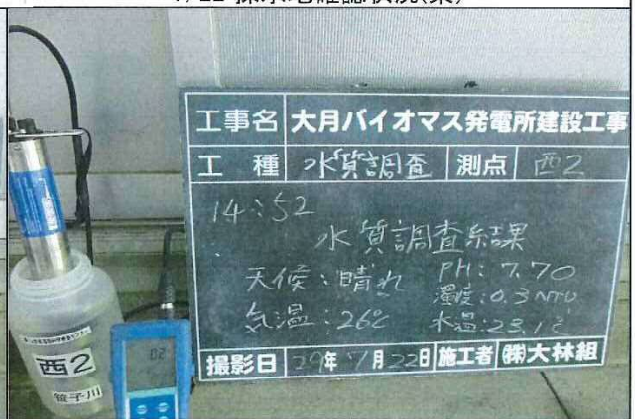 工事名 大月バイオマス発電所建設工事
工種 水質調査 測点 西2
14:52
水質調査結果
天候:晴れ PH:7.70
濁度:0.3NTU
気温:26℃ 水温:23.1℃
撮影日 29年7月22日 施工者 ㈱大林組
西2
笹子川